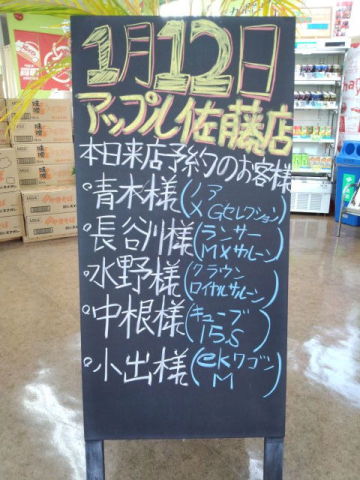 1月12日
アップル佐藤店
本日来店予約のお客様
青木様(ノア
X Gセレクション)
長谷川様(ランサー
MXサルーン)
水野様(クラウン
ロイヤルサルーン)
中根様(キューブ
15S)
小出様(ekワゴン
M)